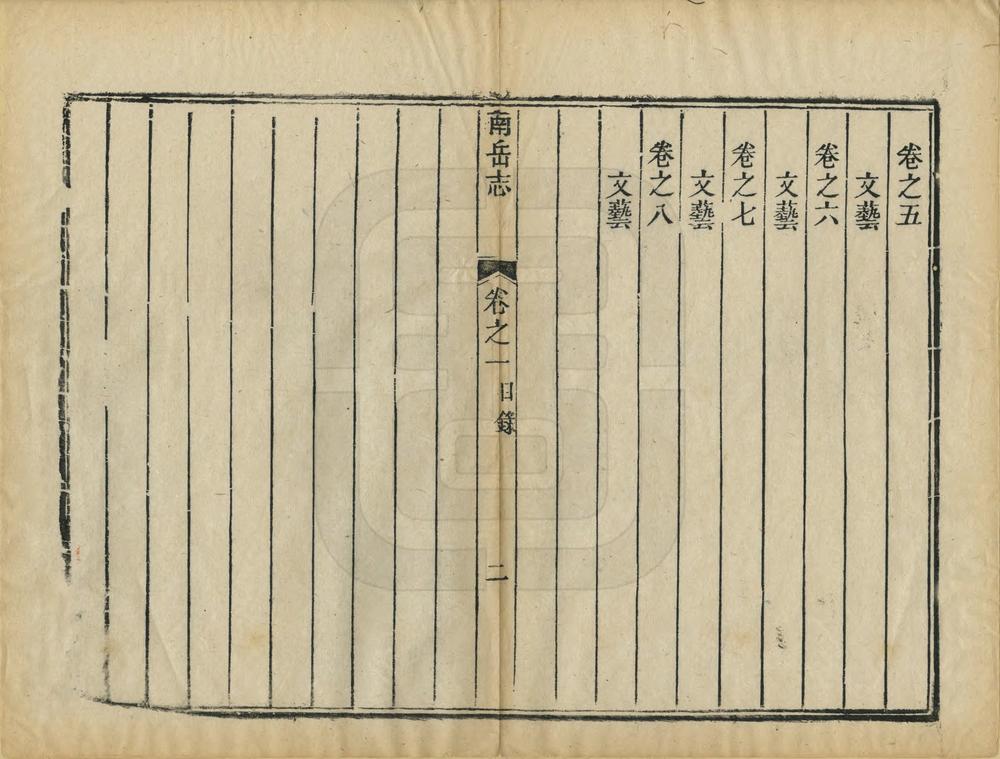 卷之五
文藝
卷之六
文藝
卷之七
文藝
卷之八
文藝
南岳志
卷之一
目錄
二